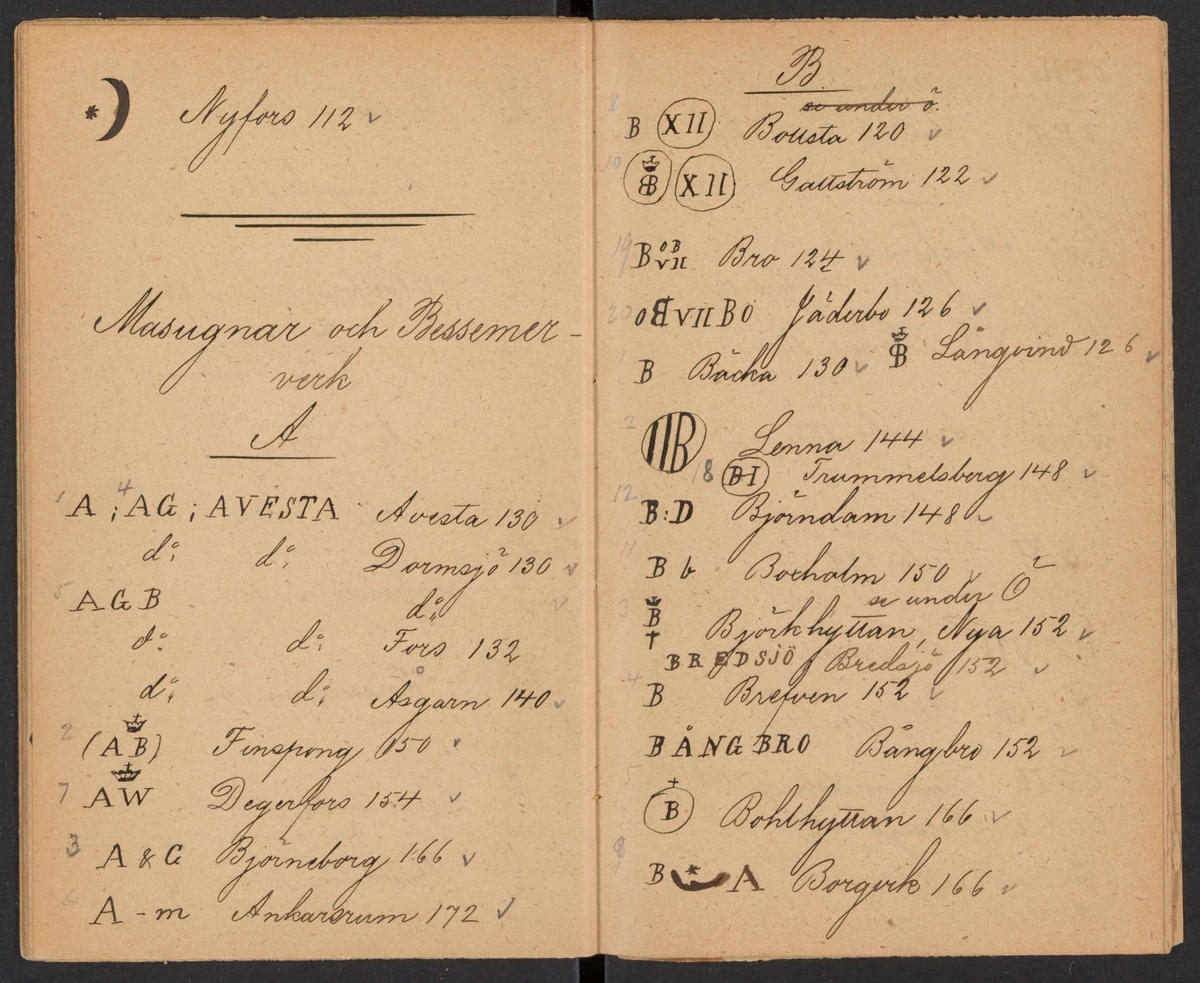 * ) Nyfors 112 ✓
Masugnar och Bessemer-
verk
A
1 4
A ; AG ; AVESTA Avesta 130 ✓
do: do: Dormsjö 130 ✓
5 AGB do: ✓
do: do: Fors 132
do: do: Åsgarn 140 ✓
2 (AB) Finspong 150 ✓
7 AW Degerfors 154 ✓
3 A & G Björneborg 166 ✓
6 A-m Ankarsrum 172 ✓
B
se under ö.
8 B XII Bousta 120 ✓
10 B XII Gattström 122 ✓
19 B oB VII Bro 124 ✓
20 oBVIIBO Jäderbo 126 ✓
B Långvind 126 ✓
1 B Bäcka 130 ✓
2 IIB Lenna 144 ✓
18 BI Trummelsberg 148 ✓
12 B:D Björndam 148 ✓
11 B b Boxholm 150 ✓
se under Ö
3 B † Björkhyttan, Nya 152 ✓
BREDSJÖ Bredsjö 152 ✓
4 B Brefven 152 ✓
BÅNGBRO Bångbro 152 ✓
5 B Bohlhyttan 166 ✓
B * A Borgvik 166 ✓